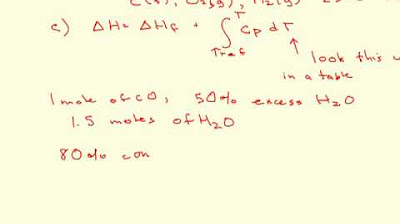 c) ΔH = ΔHf + ∫ Tref T Cp dT
look this
in a table
1 mole of CO, 50% excess H2O
1.5 moles of H2O
80% con